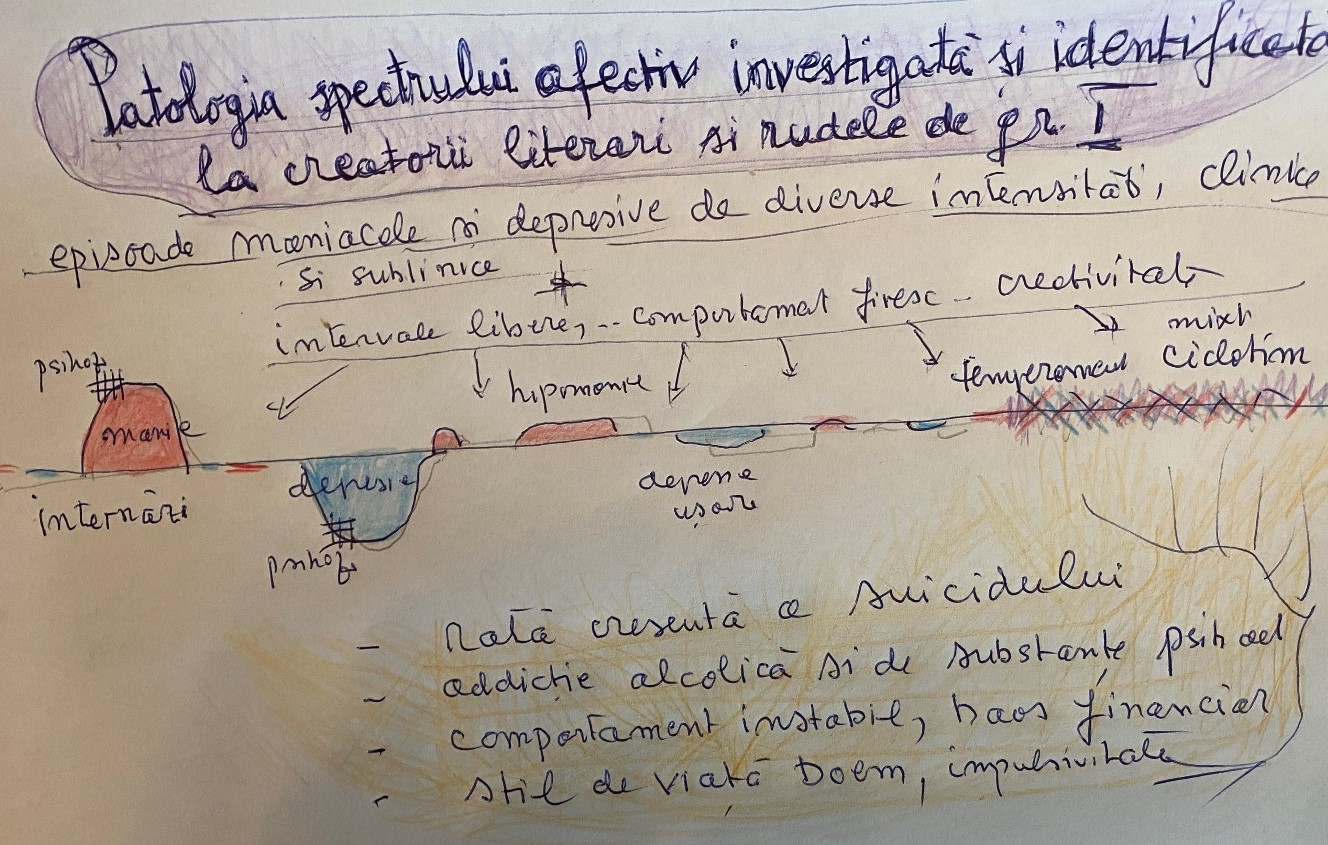 Patologia spectrului afectiv investigată și identificată
la creatorii literari si rudele de gr. I
episoade maniacale și depresive de diverse intensităti, clinice
si sublinice
+
intervale libere, .. comportamat firesc - creativitate
mixt
psihoz
hipomanie
temperament ciclotim
manie
depresie
depresie
ușoare
internări
psihoz
- Rată crescută a suicidului
- addictie alcolică si de substanțe psihoact
- comportament instabil, haos financiar
- stil de viată boem, impulsivitate